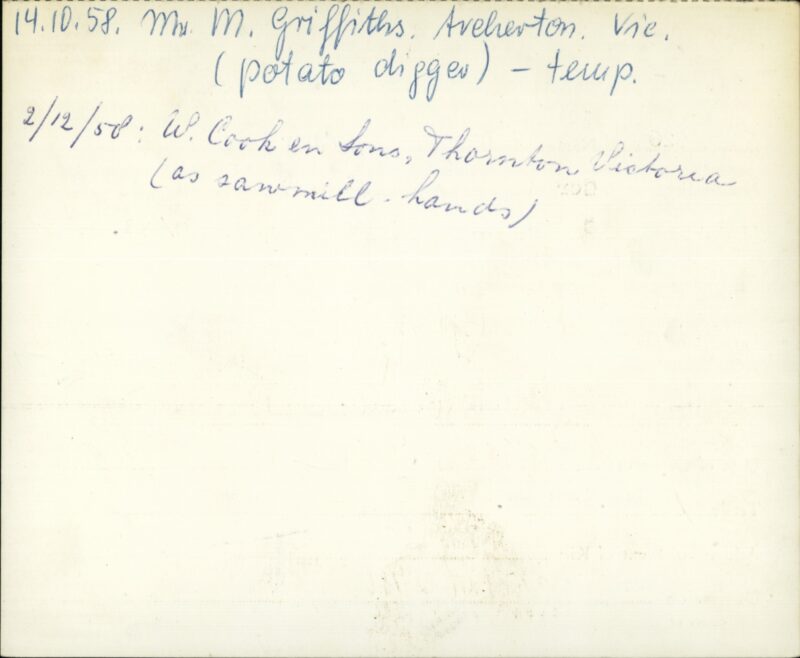 14.10.58. Mr. M. Griffiths. Archerton. Vic.
(potato digger) - temp.
2/12/58: W. Cook en Sons, Thornton Victoria
(as sawmill-hands)